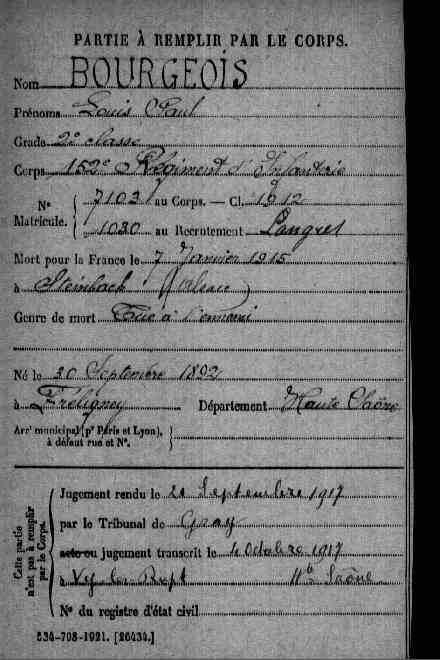 PARTIE À REMPLIR PAR LE CORPS.
Nom BOURGEOIS
Prénoms Louis Paul
Grade 2e classe
Corps 152e Régiment d'Infanterie
No Matricule. 7103 au Corps. — Cl. 1912
1030 au Recrutement Langres
Mort pour la France le 7 Janvier 1915
à Steinbach (Alsace)
Genre de mort Tué à l'ennemi
Né le 30 Septembre 1892
à Fréligney Département Haute Saône
Arrt municipal (pr Paris et Lyon), à défaut rue et No.
Cette partie n'est pas à remplir par le Corps.
Jugement rendu le 21 Septembre 1917
par le Tribunal de Gray
acte ou jugement transcrit le 4 Octobre 1917
à Vy les Rupt Hte Saône
No du registre d'état civil
534-708-1921. [26434.]